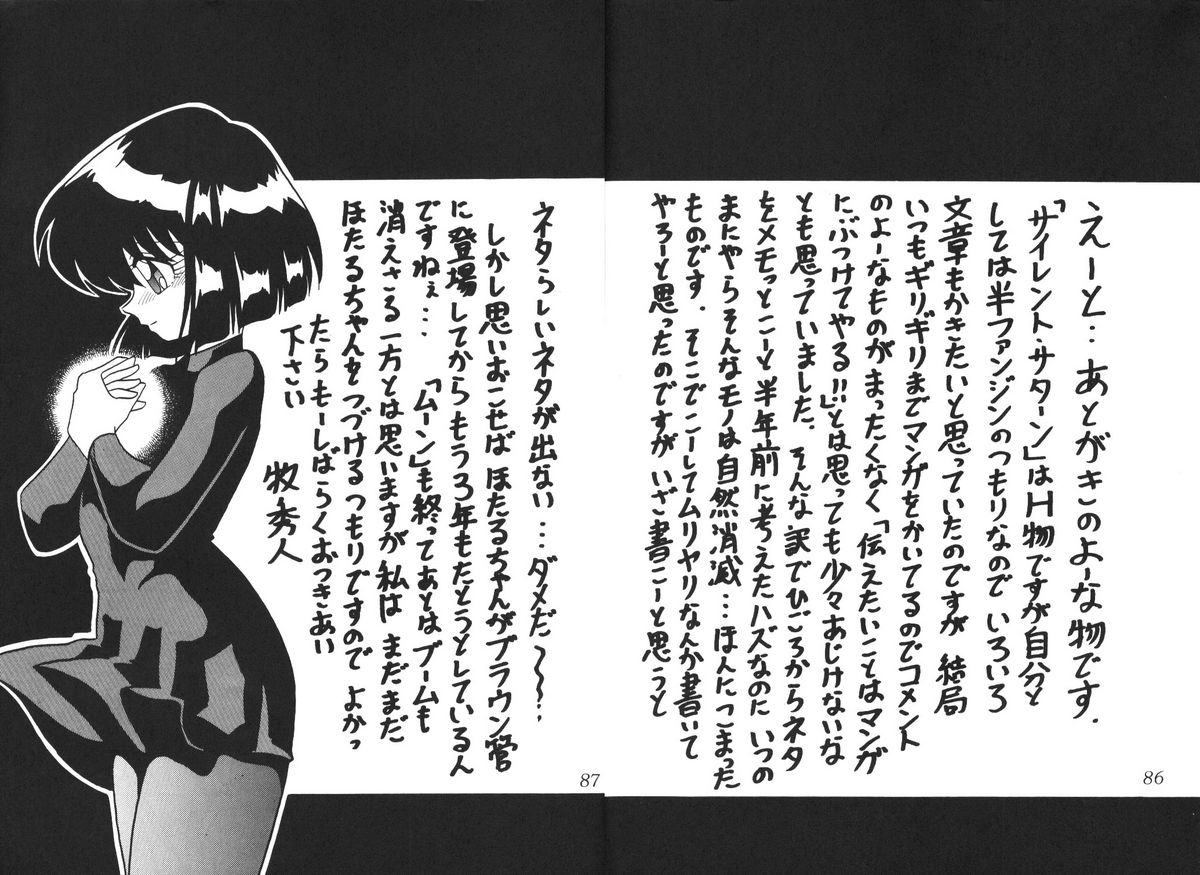 えーと‥あとがきのよーな物です.
「サイレント・サターン」はH物ですが自分と
しては半ファンジンのつもりなのでいろいろ
文章もかきたいと思っていたのですが 結局
いつもギリギリまでマンガをかいてるのでコメント
のよーなものがまったくなく「伝えたいことはマンガ
にぶつけてやる!!」とは思っても少々あじけないな
とも思っていました. そんな訳でひごろからネタ
をメモっとこーと半年前に考えたハズなのにいつの
まにやらそんなモノは自然消滅…ほんにこまった
ものです. そこでこーしてムリヤリなんか書いて
やろーと思ったのですが いざ書こーと思うと
86
ネタらしいネタが出ない…ダメだ〜〜.
しかし思いおこせばほたるちゃんがブラウン管
に登場してからもう3年もたとうとしているん
ですねぇ… 「ムーン」も終ってあとはブームも
消えさる一方とは思いますが私は まだまだ
ほたるちゃんをつづけるつもりですので よかっ
たらもーしばらくおつきあい
下さい
牧秀人
87